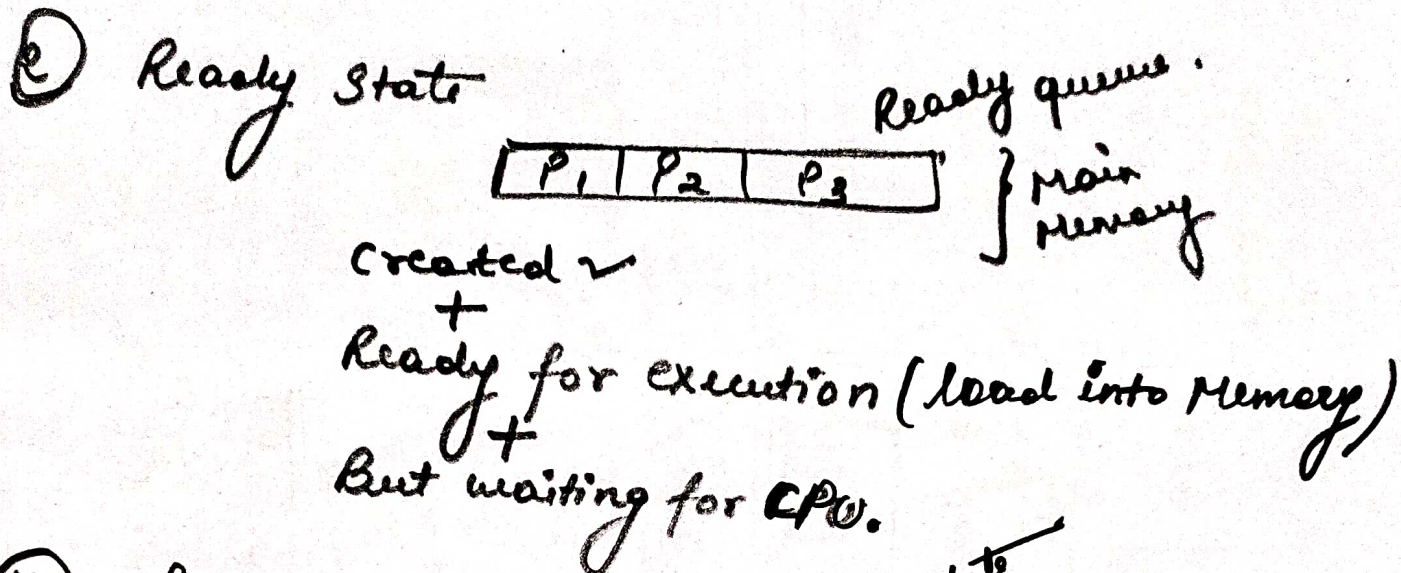 ② Ready State
Ready queue.
P1 P2 P3 } Main
Memory
Created ✓
+
Ready for execution (load into Memory)
+
But waiting for CPU.